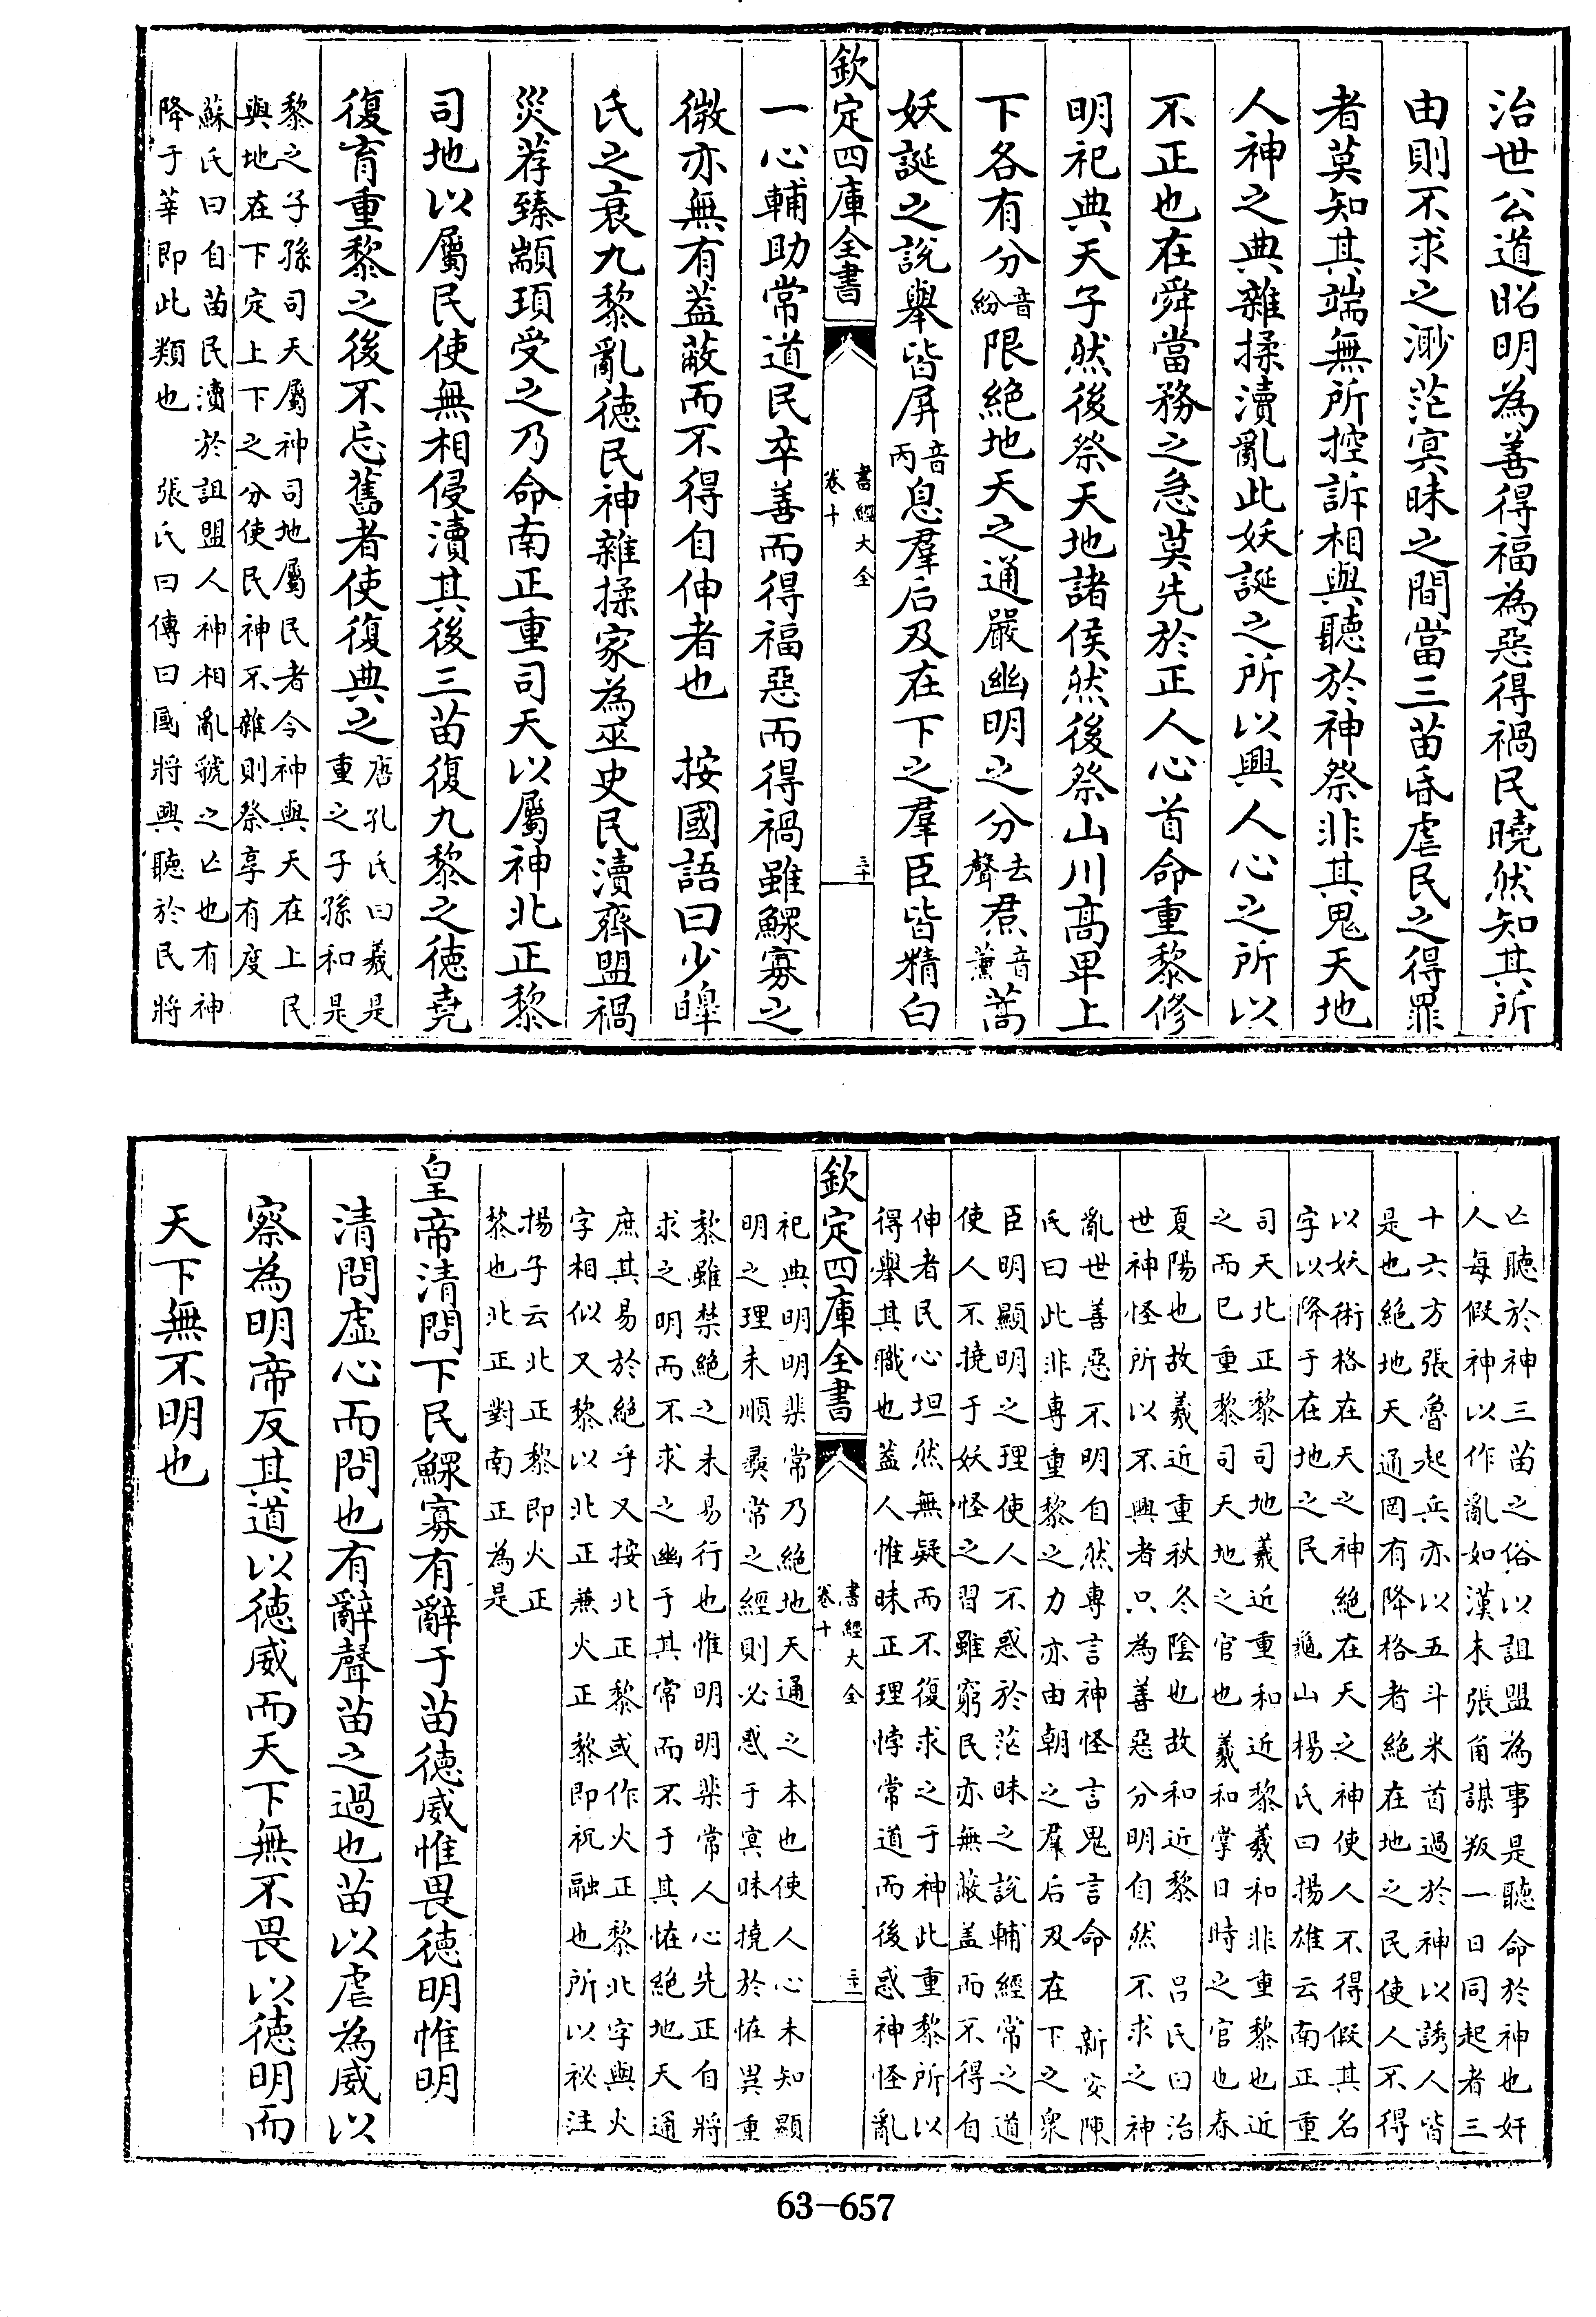 治世公道昭明為善得福為惡得禍民曉然知其所
由則不求之渺茫冥昧之間當三苗昏虐民之得罪
者莫知其端無所控訴相與聽於神祭非其鬼天地
人神之典雜揉瀆亂此妖誕之所以興人心之所以
不正也在舜當務之急莫先於正人心首命重黎修
明祀典天子然後祭天地諸侯然後祭山川髙卑上
下各有分音紛限絶地天之通嚴幽明之分去聲焄音薰蒿
妖誕之說舉皆屏音丙息羣后及在下之羣臣皆精白
欽定四庫全書
書經大全
卷十
三十
一心輔助常道民卒善而得福惡而得禍雖鰥寡之
微亦無有葢蔽而不得自伸者也　按國語曰少皥
氏之衰九黎亂徳民神雜揉家為巫史民瀆齊盟禍
災荐臻顓頊受之乃命南正重司天以屬神北正黎
司地以屬民使無相侵瀆其後三苗復九黎之徳堯
復育重黎之後不忘舊者使復典之
唐孔氏曰羲是
重之子孫和是
黎之子孫司天屬神司地屬民者令神與天在上民
與地在下定上下之分使民神不雜則祭享有度
蘇氏曰自苗民瀆於詛盟人神相亂虢之亡也有神
降于莘即此類也　張氏曰傳曰國將興聽於民將
亡聽於神三苗之俗以詛盟為事是聽命於神也奸
人每假神以作亂如漢末張角謀叛一日同起者三
十六方張魯起兵亦以五斗米首過於神以誘人皆
是也絶地天通罔有降格者絶在地之民使人不得
以妖術格在天之神絶在天之神使人不得假其名
字以降于在地之民　龜山楊氏曰揚雄云南正重
司天北正黎司地羲近重和近黎羲和非重黎也近
之而已重黎司天地之官也羲和掌日時之官也春
夏陽也故羲近重秋冬陰也故和近黎　吕氏曰治
世神怪所以不興者只為善惡分明自然不求之神
亂世善惡不明自然專言神怪言鬼言命　新安陳
氏曰此非專重黎之力亦由朝之羣后及在下之衆
臣明顯明之理使人不惑於茫昧之說輔經常之道
使人不撓于妖怪之習雖窮民亦無蔽盖而不得自
伸者民心坦然無疑而不復求之于神此重黎所以
得舉其職也葢人惟昧正理悖常道而後惑神怪亂
欽定四庫全書
書經大全
卷十
三十一
祀典明明棐常乃絶地天通之本也使人心未知顯
明之理未順彞常之經則必惑于冥昧撓於恠異重
黎雖禁絶之未易行也惟明明棐常人心先正自將
求之明而不求之幽于其常而不于其恠絶地天通
庶其易於絶乎又按北正黎或作火正黎北字與火
字相似又黎以北正兼火正黎即祝融也所以祕注
揚子云北正黎即火正
黎也北正對南正為是
皇帝清問下民鰥寡有辭于苗徳威惟畏徳明惟明
清問虚心而問也有辭聲苗之過也苗以虐為威以
察為明帝反其道以徳威而天下無不畏以徳明而
天下無不明也
63—657